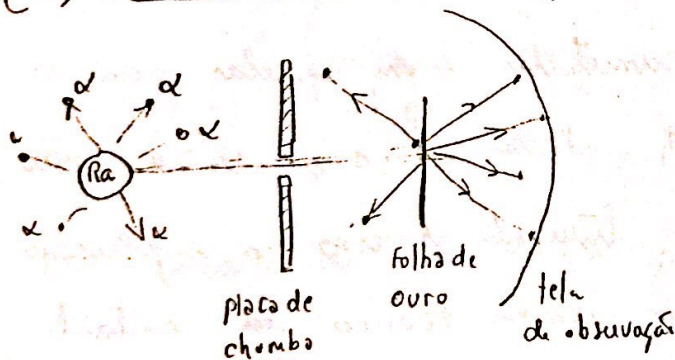 α
α
α
Ra
α
α
placa de
chomba
Folha de
ouro
tela
de obsuvação